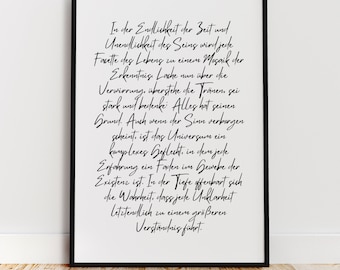 In der Endlichkeit der Zeit und
Unendlichkeit des Seins wird jede
Facette des Lebens zu einem Mosaik der
Erkenntnis. Lache nun über die
Verwirrung, überstehe die Tränen, sei
stark und bedenke: Alles hat seinen
Grund. Auch wenn der Sinn verborgen
scheint, ist das Universum ein
komplexes Geflecht, in dem jede
Erfahrung ein Faden im Gewebe der
Existenz ist. In der Tiefe offenbart sich
die Wahrheit, dass jede Unklarheit
letztendlich zu einem größeren
Verständnis führt.